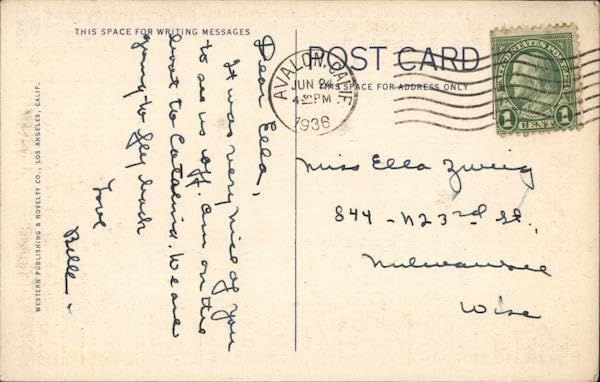 THIS SPACE FOR WRITING MESSAGES
Dear Ella,
It was very nice of you
to see us off. Am on the
boat to Catalina. We are
going to fly back
Love
Bille.
WESTERN PUBLISHING & NOVELTY CO., LOS ANGELES, CALIF.
POST CARD
THIS SPACE FOR ADDRESS ONLY
AVALON, CALIF.
JUN 24
4 PM
1936
UNITED STATES POSTAGE
1 CENT 1
Miss Ella Zweig
844 - N 23rd St.,
Milwaukee
Wisc